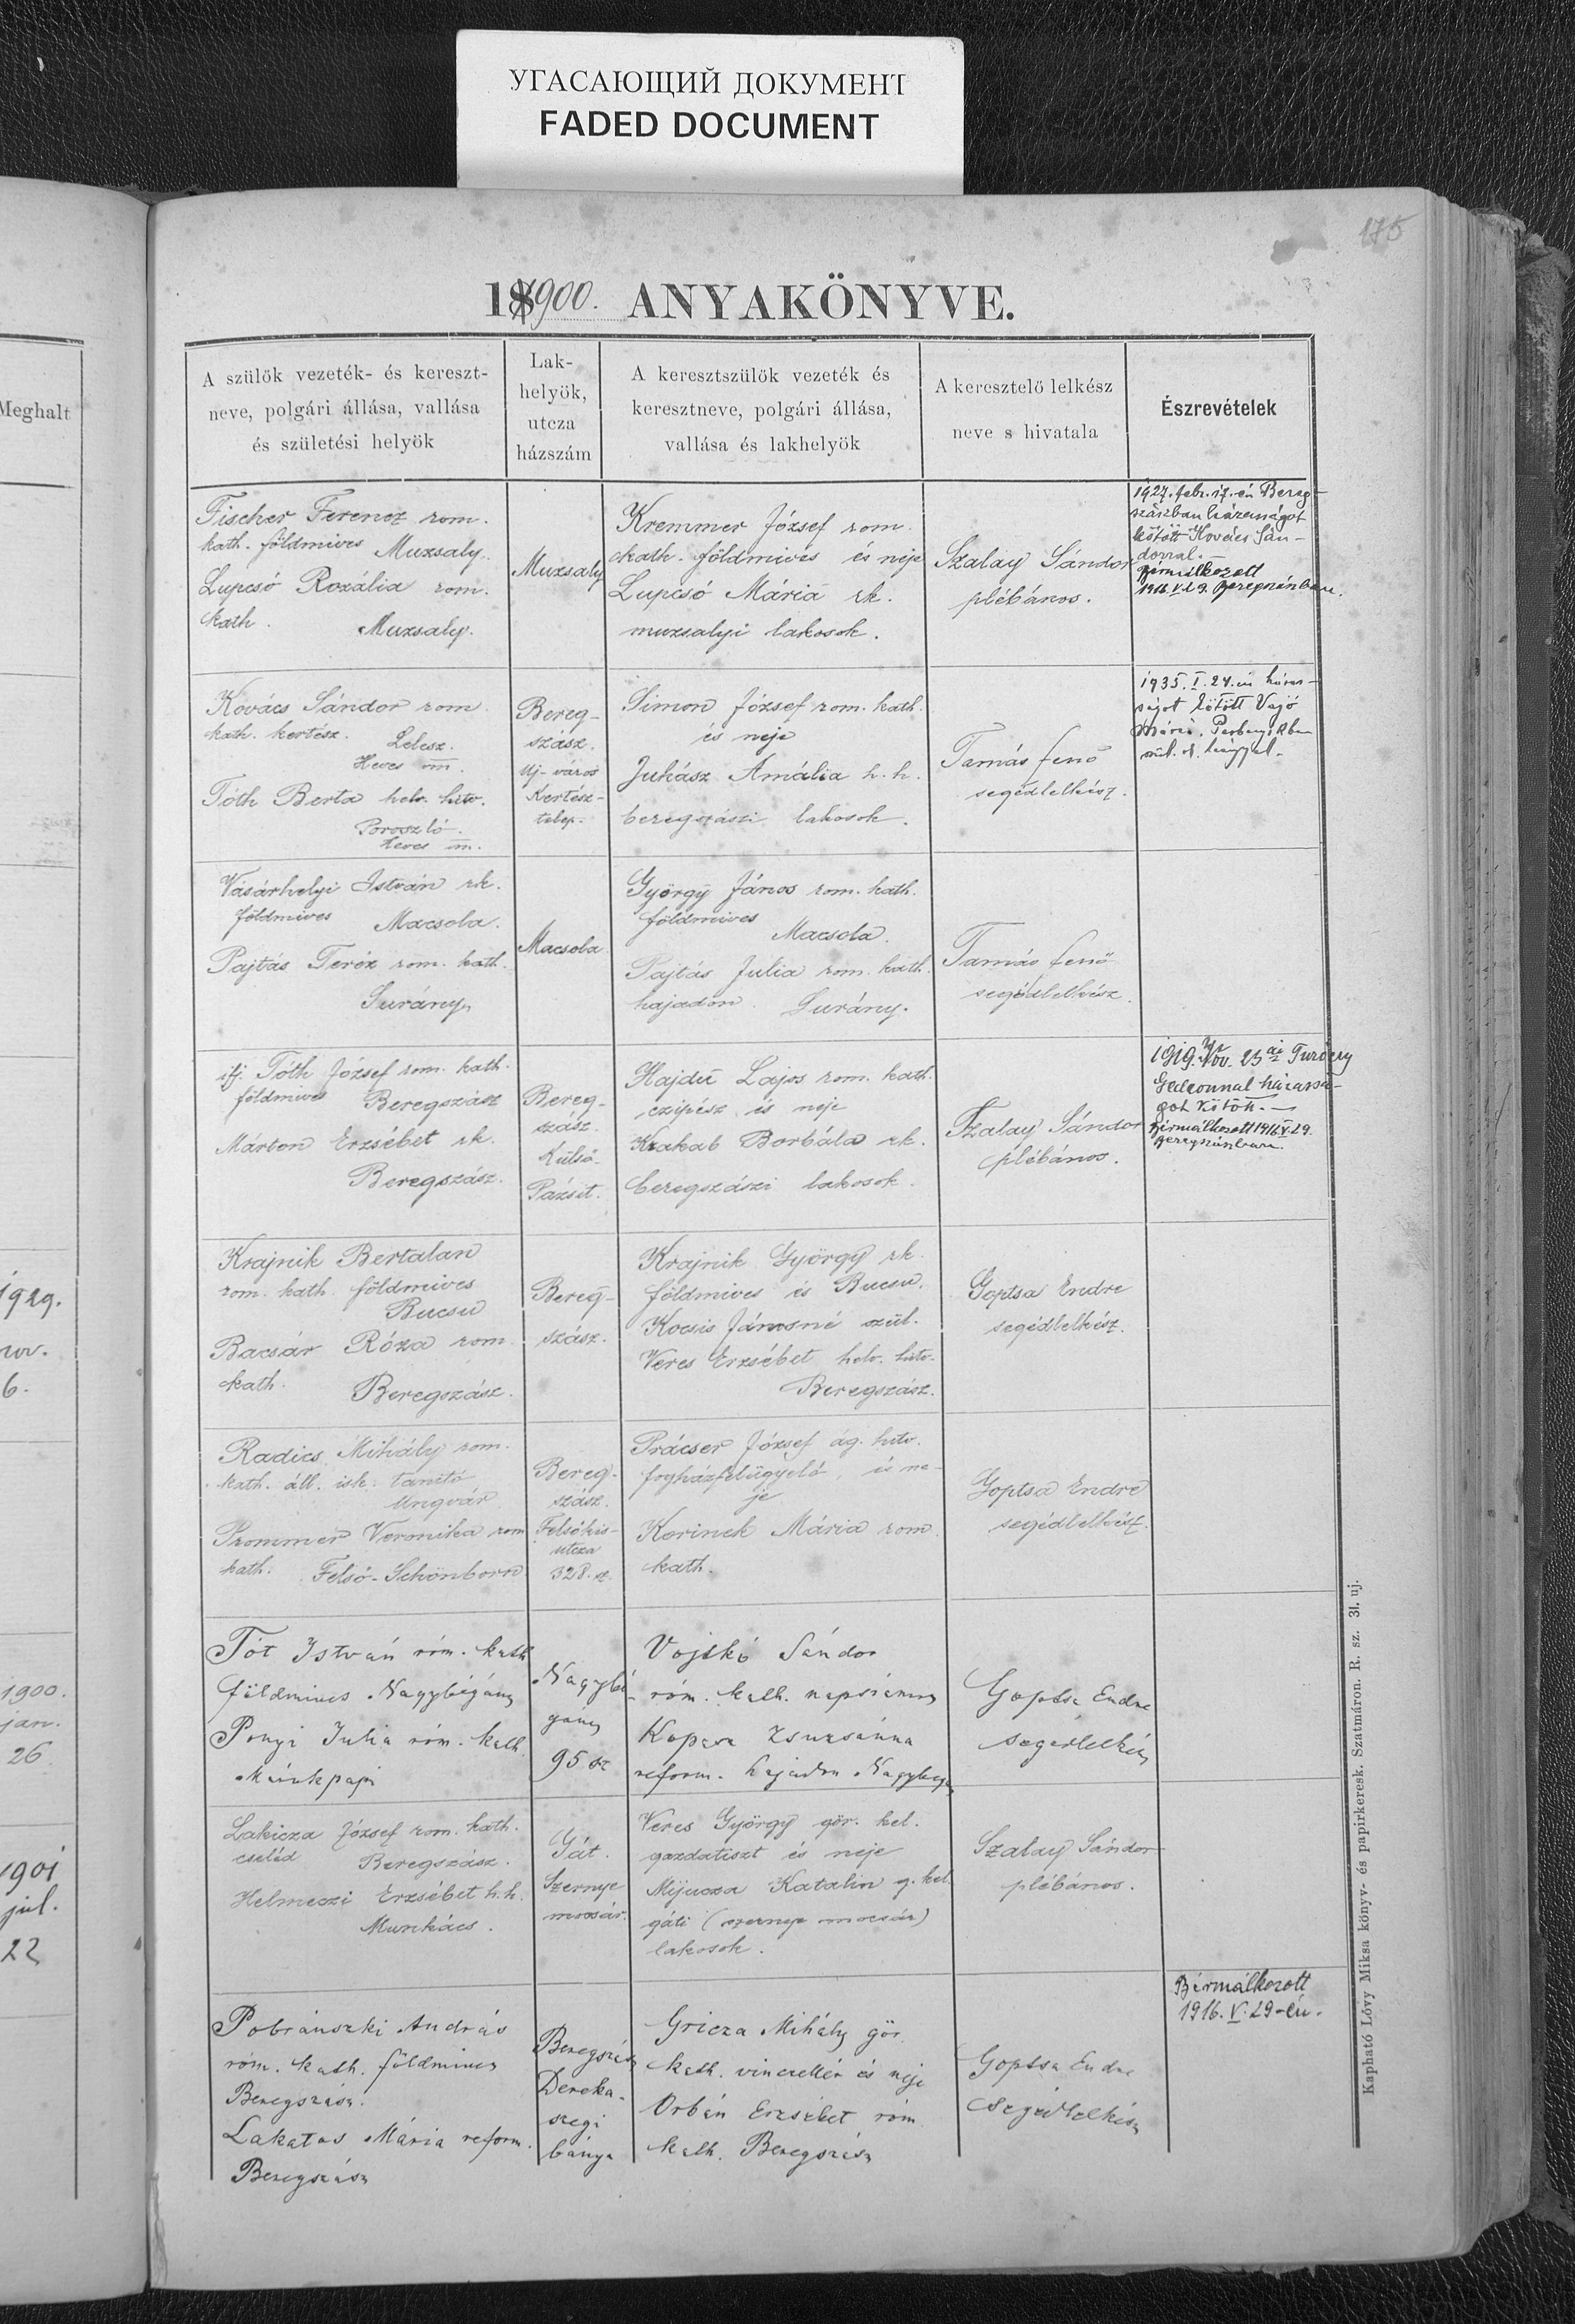 УГАСАЮЩИЙ ДОКУМЕНТ
FADED DOCUMENT
175
1900. ANYAKÖNYVE.
Meghalt
A szülök vezeték- és kereszt-
neve, polgári állása, vallása
és születési helyök
Lak-
helyök,
utcza
házszám
A keresztszülök vezeték és
keresztneve, polgári állása,
vallása és lakhelyök
A keresztelö lelkész
neve s hivatala
Észrevételek
Fischer Ferencz rom.
kath. földmives Muzsaly.
Lupcsó Rozália rom.
kath. Muzsaly.
Muzsaly
Kremmer József rom.
kath. földmives és neje
Lupcsó Mária rk.
muzsalyi lakosok.
Szalay Sándor
plébános.
1927. febr. 17.-én Bereg-
szászban házasságot
kötött Kovács Sán-
dorral.-
Bérmálkozott
1916. V. 29. Beregszászban.
Kovács Sándor rom.
kath. kertész. Lelesz.
Heves m.
Tóth Berta helv. hitv.
Poroszló.
Heves m.
Bereg-
szász.
Uj-város
Kertész-
telep.
Simon József rom. kath.
és neje
Juhász Amália h. h.
beregszászi lakosok.
Tamás Jenő
segédlelkész.
1935. I. 24.én házas-
ságot kötött Vajó
Mária,
Vásárhelyi István rk.
földmives Macsola.
Pajtás Teréz rom. kath.
Surány
Macsola
György János rom. kath.
földmives
Macsola.
Pajtás Julia rom. kath.
hajadon. Surány.
Tamás Jenő
segédlelkész.
ifj. Tóth József rom. kath.
földmives Beregszász
Márton Erzsébet rk.
Beregszász.
Bereg-
szász.
Külső-
Pázsit.
Hajdu Lajos rom. kath.
czipész és neje
Krakab Borbála rk.
beregszászi lakosok.
Szalay Sándor
plébános.
1919. Nov. 23 ai
Gedeonnal házassá-
got kötött.-
Bérmálkozott 1916. V. 29.
Beregszászban.
Krajnik Bertalan
rom. kath. földmives
Bucsu
Bacsár Róza rom.
kath. Beregszász.
Bereg-
szász.
Krajnik György rk.
földmives és Bucsu.
Kocsis Jánosné szül.
Veres Erzsébet helv. hitv.
Beregszász.
Goptsa Endre
segédlelkész.
1929.
6.
Radics Mihály rom.
kath. áll. isk. tanító
Ungvár
Prommer Veronika rom
kath. Felső-Schönborn
Bereg-
szász.
Felsőkis-
utcza
328. sz.
Prácser József ág. hitv.
fogházfelügyelő, és ne-
je
Korinek Mária rom.
kath.
Goptsa Endre
segédlelkész.
Tót István róm. kath
földmives Nagybégány
Ponyi Julia róm. kath.
1900.
jan.
26.
Nagybé-
gány
95 sz
Vojtkó Sándor
róm. kath. napszámos
Kopasz Zsuzsánna
reform. hajadon
Goptsa Endre
segédlelkész
Lakicza József rom. kath.
cseléd Beregszász.
Helmeczi Erzsébet h. h.
Munkács.
1901
jul.
22
Gát.
Szernye
mocsár.
Veres György gör. kel.
gazdatiszt és neje
Mijucza Katalin g. kel.
gáti (szernye mocsár)
lakosok.
Szalay Sándor
plébános.
Pobránszki András
róm. kath. földmives
Beregszász.
Lakatos Mária reform.
Beregszász
Beregszász
Dereka-
szegi
bánya
Gricza Mihály gör.
kath. vinczellér és neje
Orbán Erzsébet róm.
kath. Beregszász
Goptsa Endre
segédlelkész
Bérmálkozott
1916. V. 29-én.
Kapható Lővy Miksa könyv- és papirkeresk. Szatmáron. R. sz. 3l. uj.